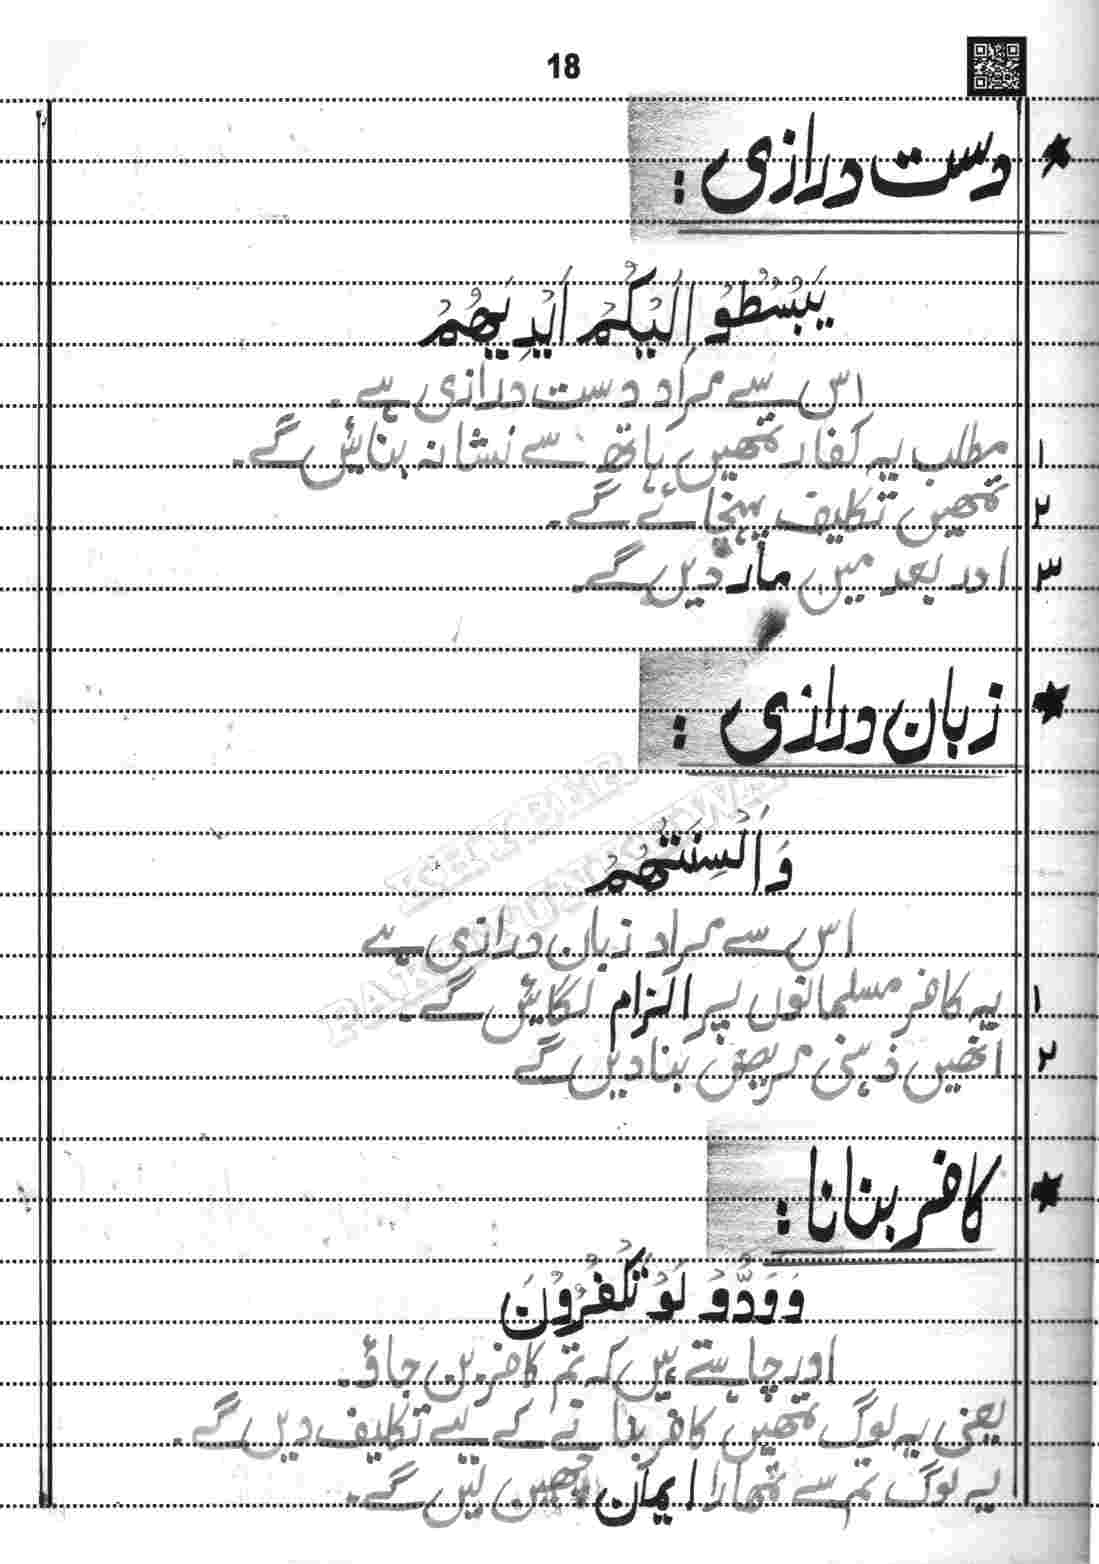 18
★ دست درازی :
یَبْسُطُوْ اِلَیْکُمْ اَیْدِیَھُمْ
اس سے مراد دست درازی ہے۔
۱ مطلب یہ کفار تمھیں ہاتھ سے نشانہ بنائیں گے۔
۲ تمھیں تکلیف پہنچائے گے۔
۳ اور بعد میں مار دیں گے۔
★ زبان درازی :
وَاَلْسِنَتَھُمْ
KHYBER PAKHTUNKHWA
اس سے مراد زبان درازی ہے
۱ یہ کافر مسلمانوں پر الزام لگائیں گے۔
۲ انھیں ذہنی مریض بنا دیں گے
★ کافر بنانا :
وَوَدُّوْ لَوْ تَکْفُرُوْنَ
اور چاہتے ہیں کہ تم کافر بن جاؤ۔
یعنی یہ لوگ تمھیں کافر بنانے کے لیے تکلیف دیں گے۔
یہ لوگ تم سے تمھارا ایمان چھین لیں گے۔